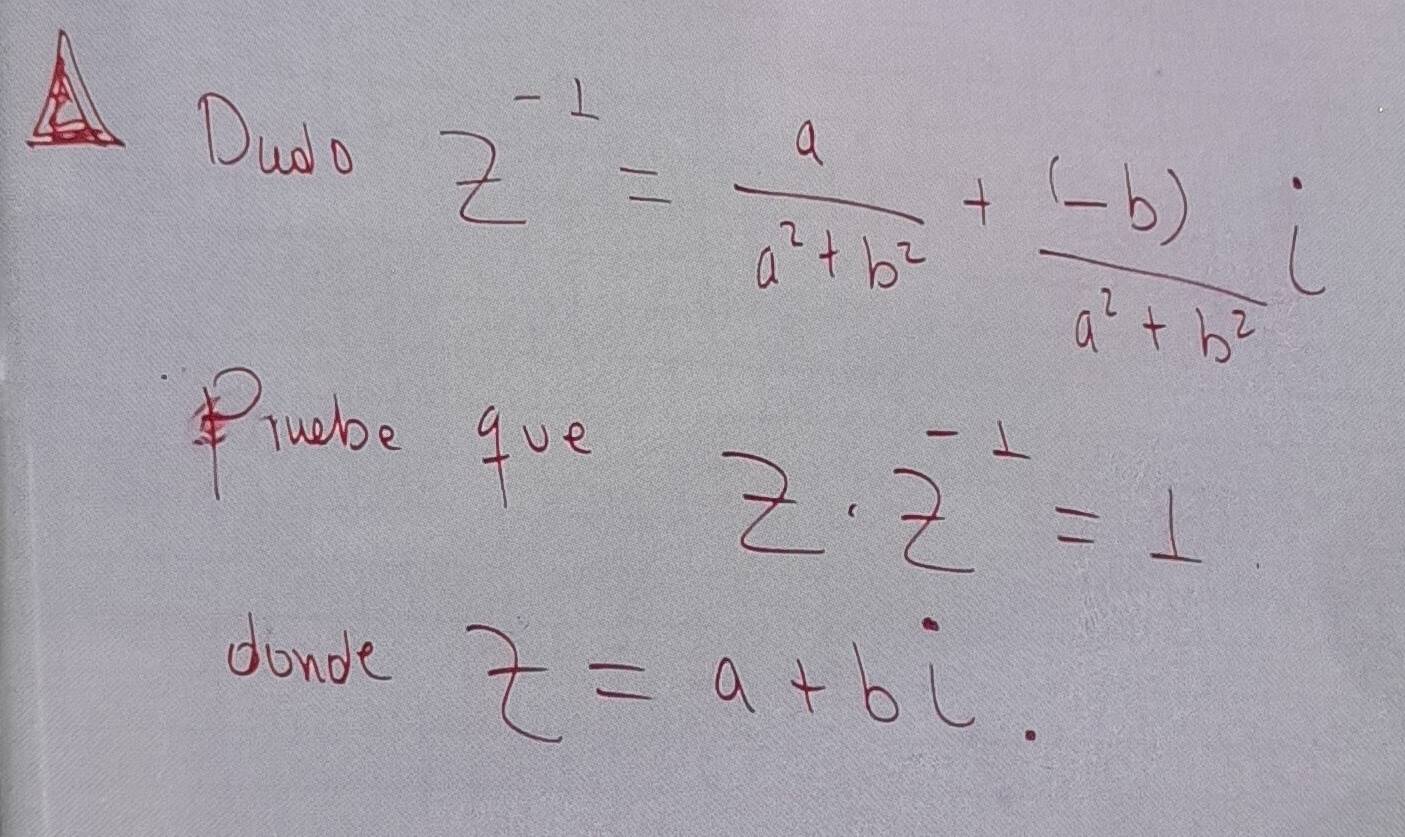 Dado z⁻¹ = a/(a² + b²) + (-b)/(a² + b²) i
Pruebe que z · z⁻¹ = 1.
donde z = a + bi.